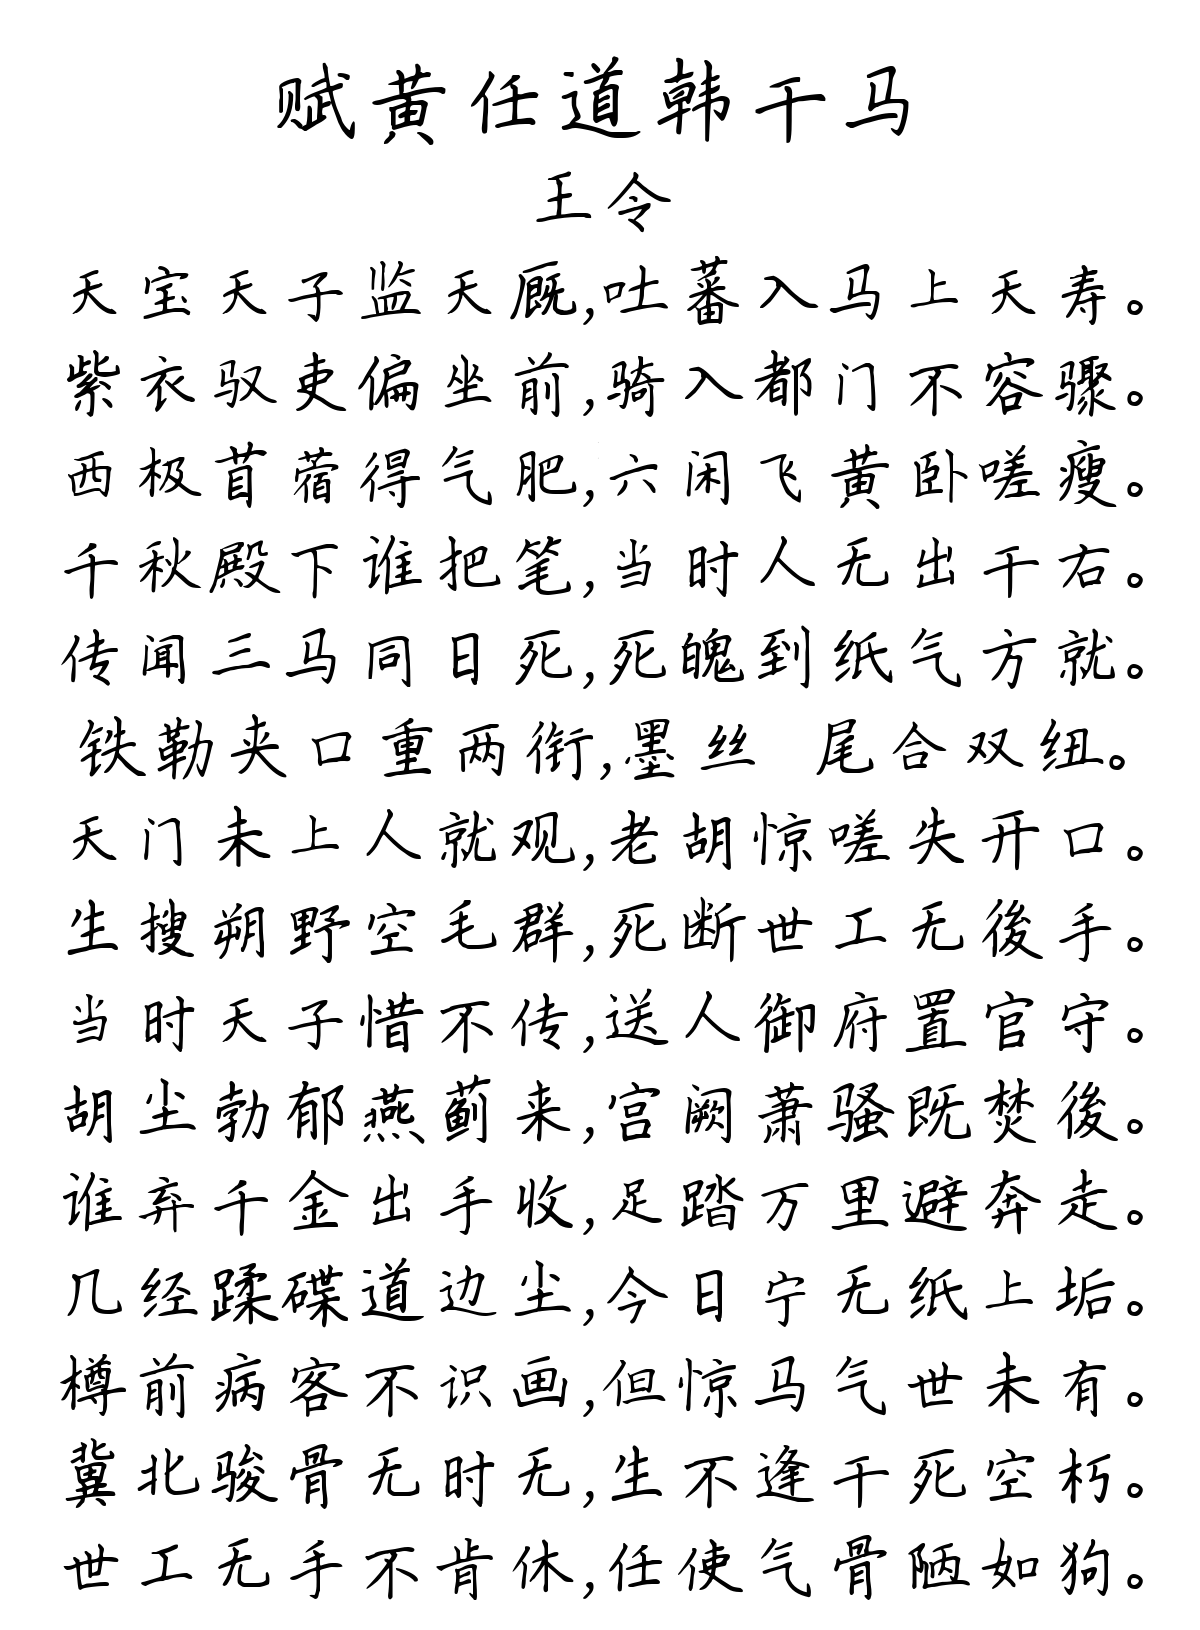 赋黄任道韩干马
王令
天宝天子监天厩,吐蕃入马上天寿。
紫衣驭吏偏坐前,骑入都门不容骤。
西极苜蓿得气肥,六闲飞黄卧嗟瘦。
千秋殿下谁把笔,当时人无出干右。
传闻三马同日死,死魄到纸气方就。
铁勒夹口重两衔,墨丝 尾合双纽。
天门未上人就观,老胡惊嗟失开口。
生搜朔野空毛群,死断世工无後手。
当时天子惜不传,送人御府置官守。
胡尘勃郁燕蓟来,宫阙萧骚既焚後。
谁弃千金出手收,足踏万里避奔走。
几经蹂碟道边尘,今日宁无纸上垢。
樽前病客不识画,但惊马气世未有。
冀北骏骨无时无,生不逢干死空朽。
世工无手不肯休,任使气骨陋如狗。